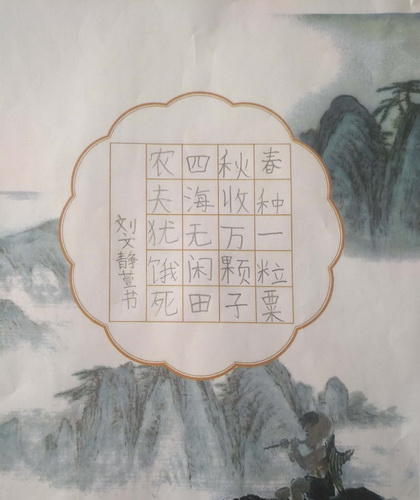 春种一粒粟
秋收万颗子
四海无闲田
农夫犹饿死
刘文静萱书